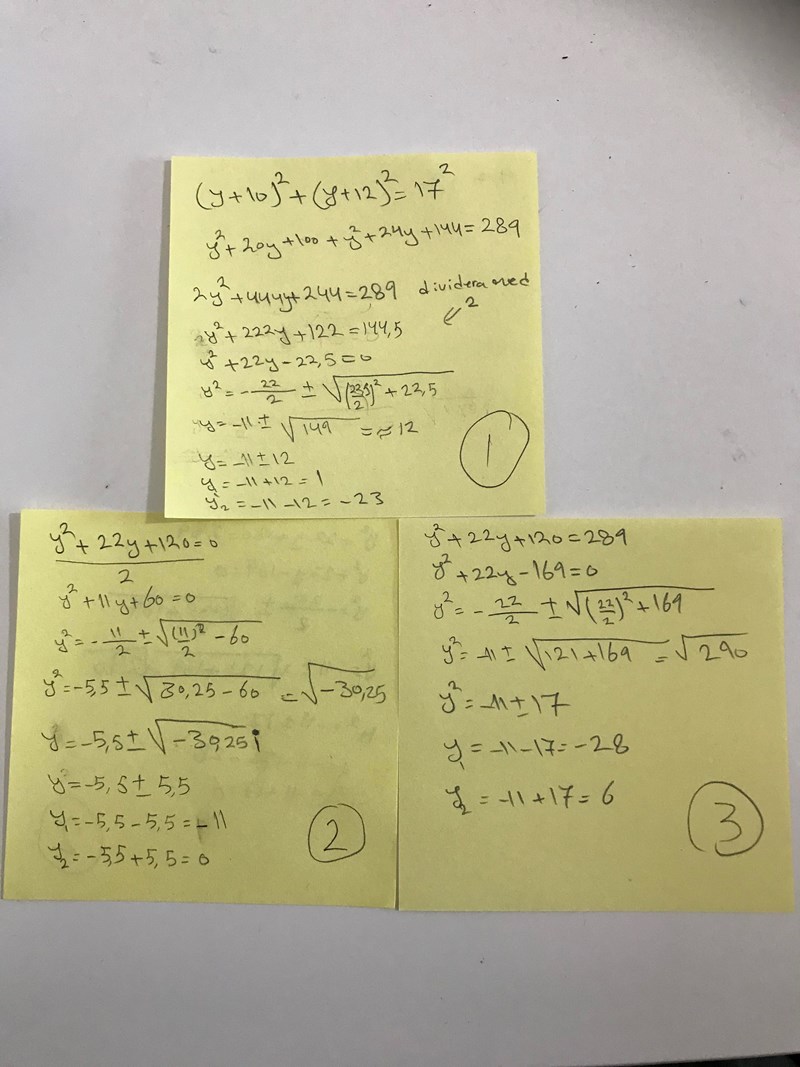 (y+10)²+(y+12)²=17²
y²+20y+100+y²+24y+144=289
2y²+44y+244=289 dividera med 2
y²+222y+122=144,5
y²+22y-22,5=0
y²=-22/2 ± √((22)/2)²+22,5
y=-11± √149 =≈12
y=-11±12
y₁=-11+12=1
y₂=-11-12=-23
1
y²+22y+120=0
2
y²+11y+60=0
y²=-11/2±√(11)²/2-60
y²=-5,5±√30,25-60=√-30,25
y=-5,5±√-30,25i
y=-5,5±5,5
y₁=-5,5-5,5=-11
y₂=-5,5+5,5=0
2
y²+22y+120=289
y²+22y-169=0
y²=-22/2±√(22/2)²+169
y²=-11±√121+169=√290
y²=-11±17
y₁=-11-17=-28
y₂=-11+17=6
3